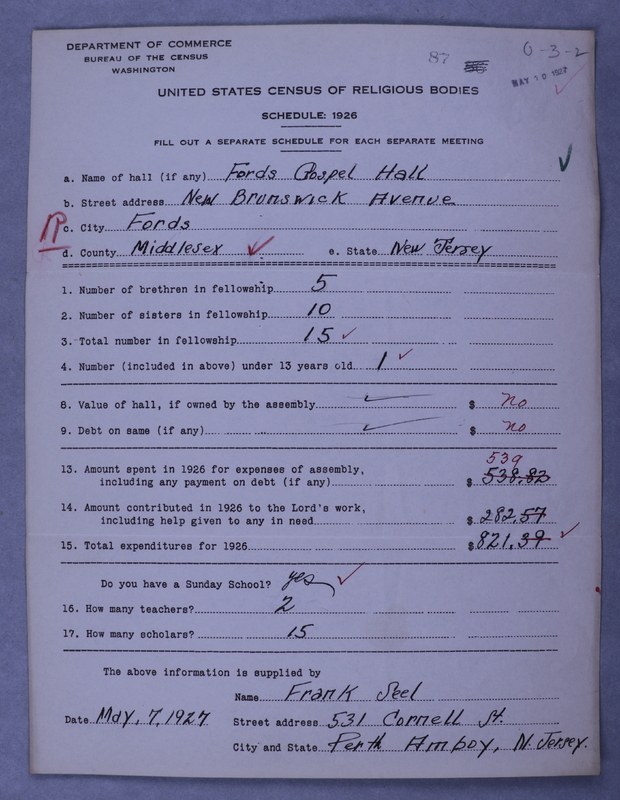 DEPARTMENT OF COMMERCE
BUREAU OF THE CENSUS
WASHINGTON
87
0-3-2
MAY 10 1927
UNITED STATES CENSUS OF RELIGIOUS BODIES
SCHEDULE: 1926
FILL OUT A SEPARATE SCHEDULE FOR EACH SEPARATE MEETING
a. Name of hall (if any) Fords Gospel Hall
b. Street address New Brunswick Avenue
c. City Fords
d. County Middlesex e. State New Jersey
1. Number of brethren in fellowship 5
2. Number of sisters in fellowship 10
3. Total number in fellowship 15
4. Number (included in above) under 13 years old 1
8. Value of hall, if owned by the assembly $ no
9. Debt on same (if any) $ no
539
13. Amount spent in 1926 for expenses of assembly,
including any payment on debt (if any) $ 538.82
14. Amount contributed in 1926 to the Lord's work,
including help given to any in need $ 282.57
15. Total expenditures for 1926 $ 821.39
Do you have a Sunday School? yes
16. How many teachers? 2
17. How many scholars? 15
The above information is supplied by
Name Frank Seel
Date May, 7, 1927 Street address 531 Cornell St.
City and State Perth Amboy, N. Jersey.